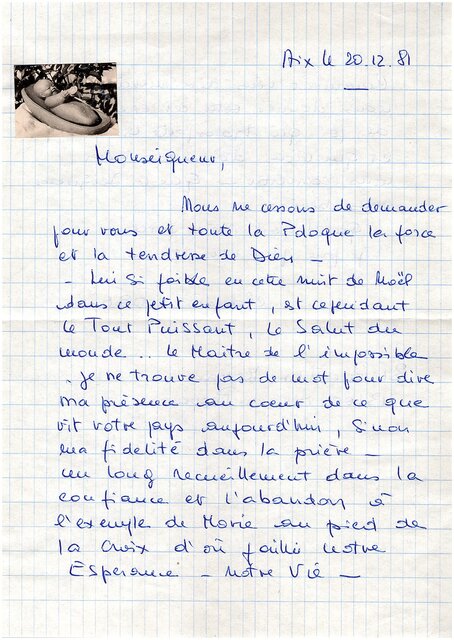 Aix le 20.12.81
Monseigneur,
Nous ne cessons de demander
pour vous et toute la Pologne la force
et la tendresse de Dieu –
– Lui si faible en cette nuit de Noël
dans ce petit enfant, et cependant
le Tout Puissant, le Salut du
monde... le Maître de l'impossible
. je ne trouve pas de mot pour dire
ma présence au coeur de ce que
vit votre pays aujourd'hui, sinon
ma fidelité dans la prière –
un long recueillement dans la
confiance et l'abandon à
l'exemple de Marie au pied de
la Croix d'où jailli notre
Espérance – notre Vie –